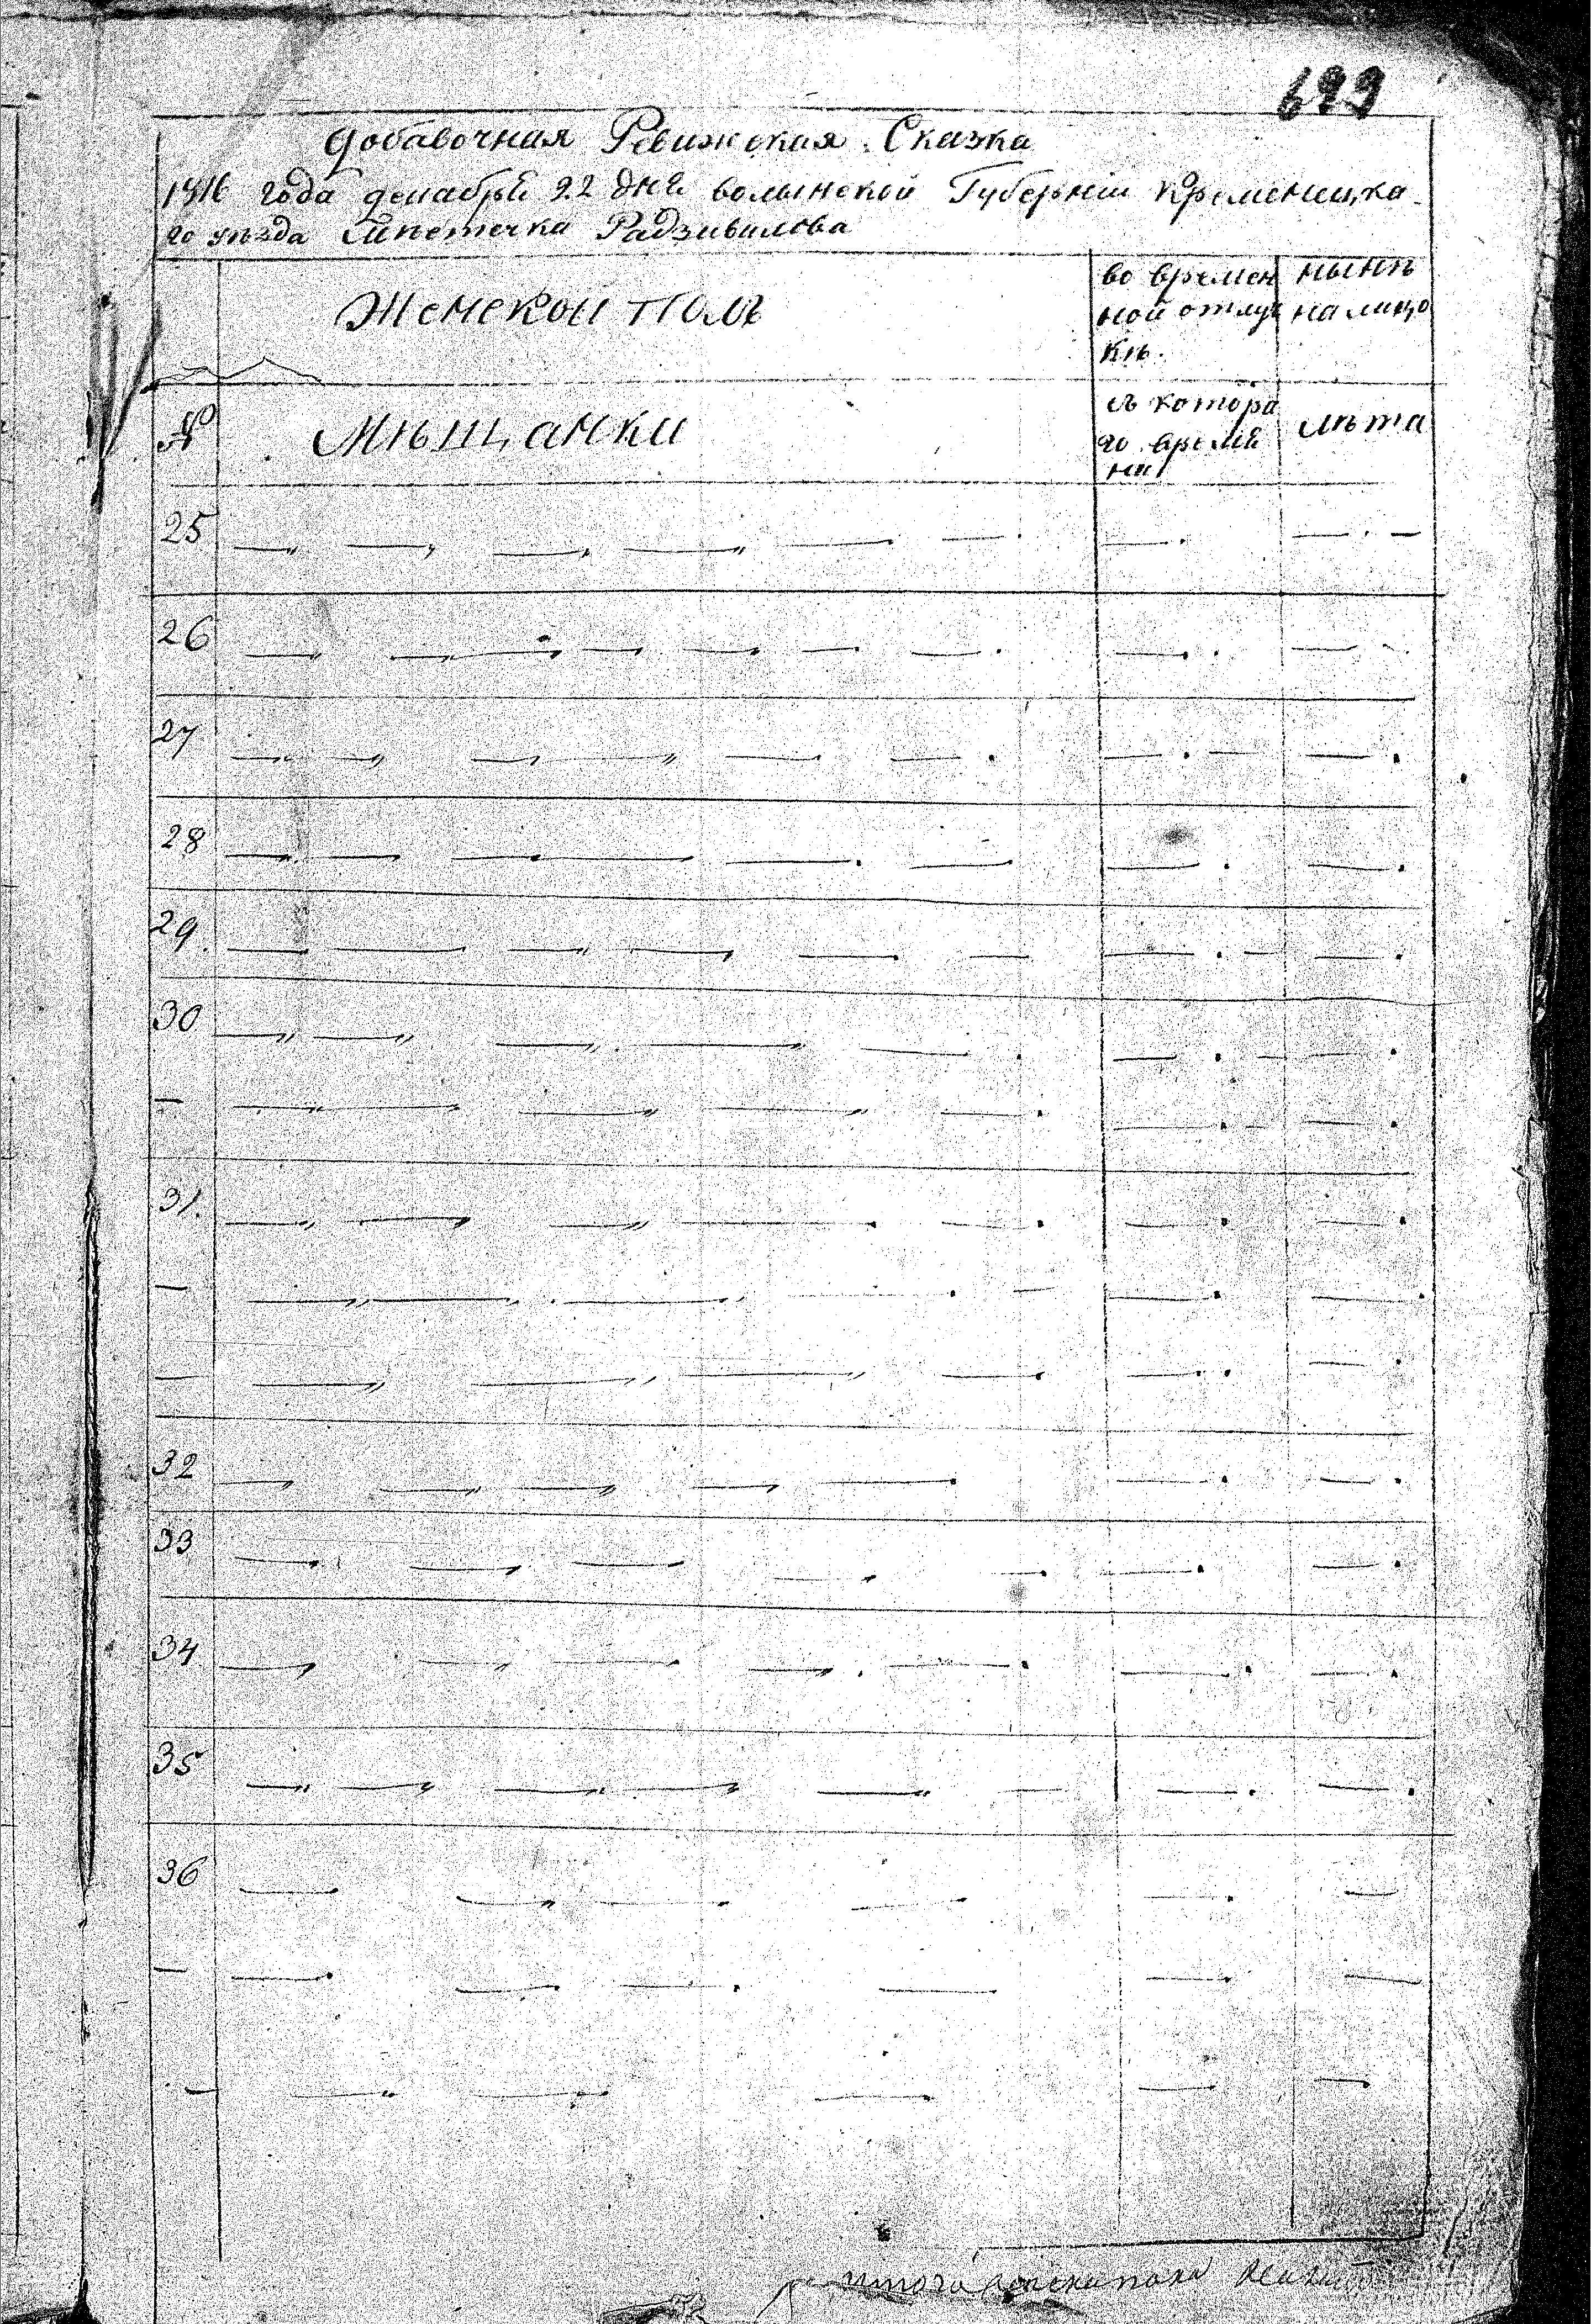 699
Добавочная Ревижская Сказка
1816 года декабря 22 дня волынской Губерніи Кременецка
го уѣзда мѣстечка Радзивилова
Женской полъ
во времен
ной отлуч
кѣ.
нынѣ
на лицо
№
Мѣщанки
съ котора
го время
ни
лѣта
25
26
27
28
29.
30
—
31.
—
—
32
33
34
35
36
—
—
итого женска пола